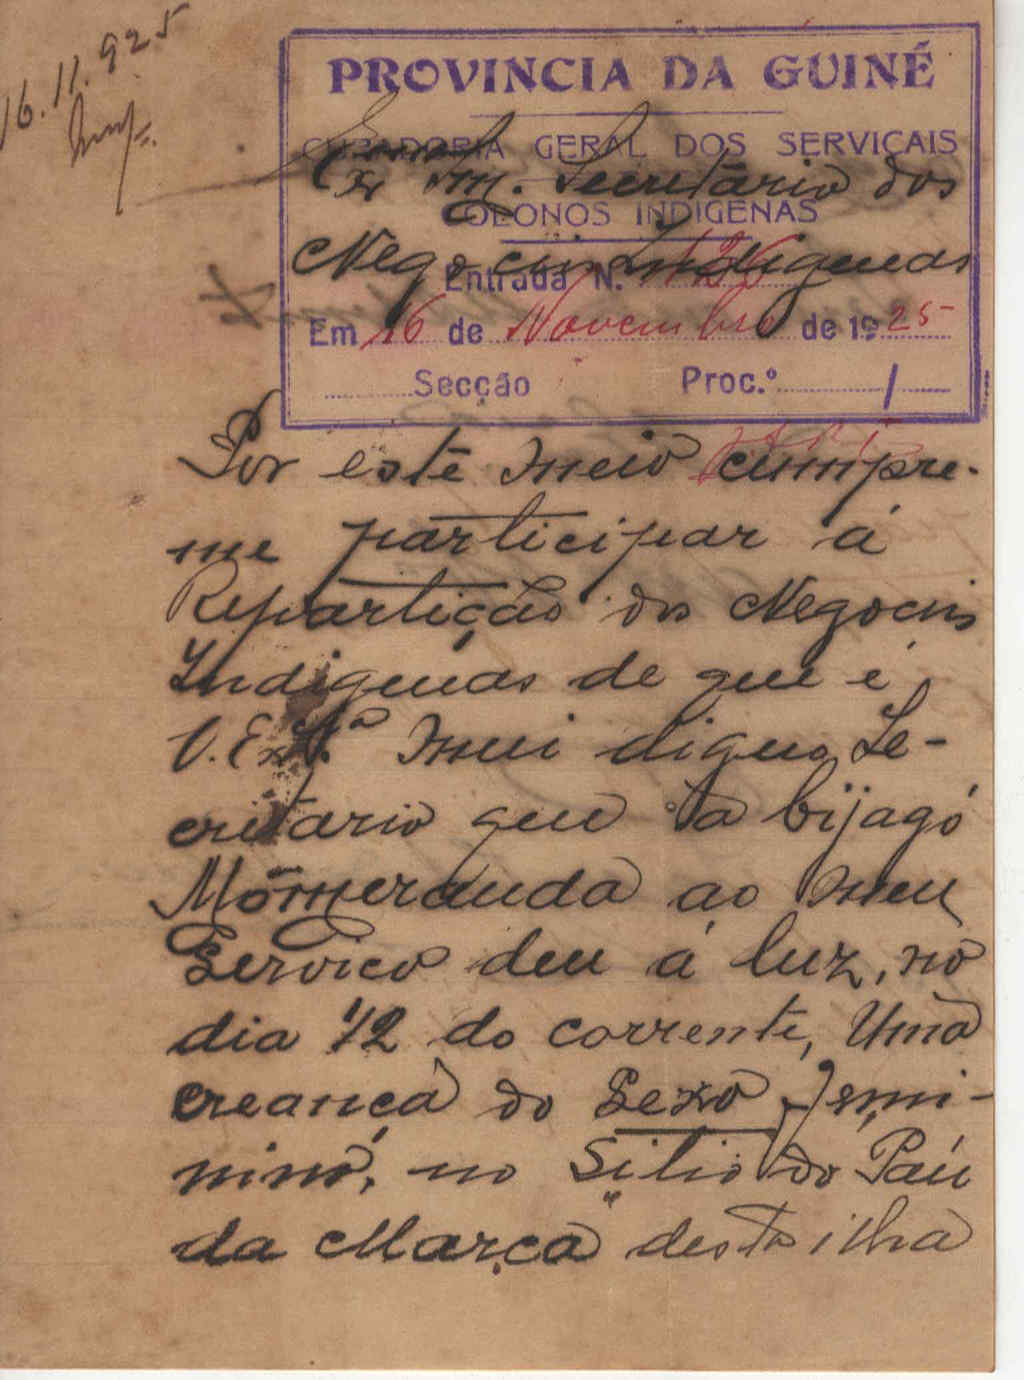 16.11.925
PROVINCIA DA GUINÉ
CURADORIA GERAL DOS SERVIÇAIS
Exmo. Snr. Secretário dos
COLONOS INDIGENAS
Negocios Indigenas
Entrada N. 126
Em 16 de Novembro de 1925
Secção Proc.º /
Por este meio cumpre-
me participar á
Repartição dos Negocios
Indigenas de que é
V. Ex.ª mui digno Se-
cretario que a bijagó
Momeranda ao meu
Servico deu á luz, no
dia 12 do corrente, Uma
creança do Sexo Femi-
nino, no Sitio do Páu
da Marca" desta ilha